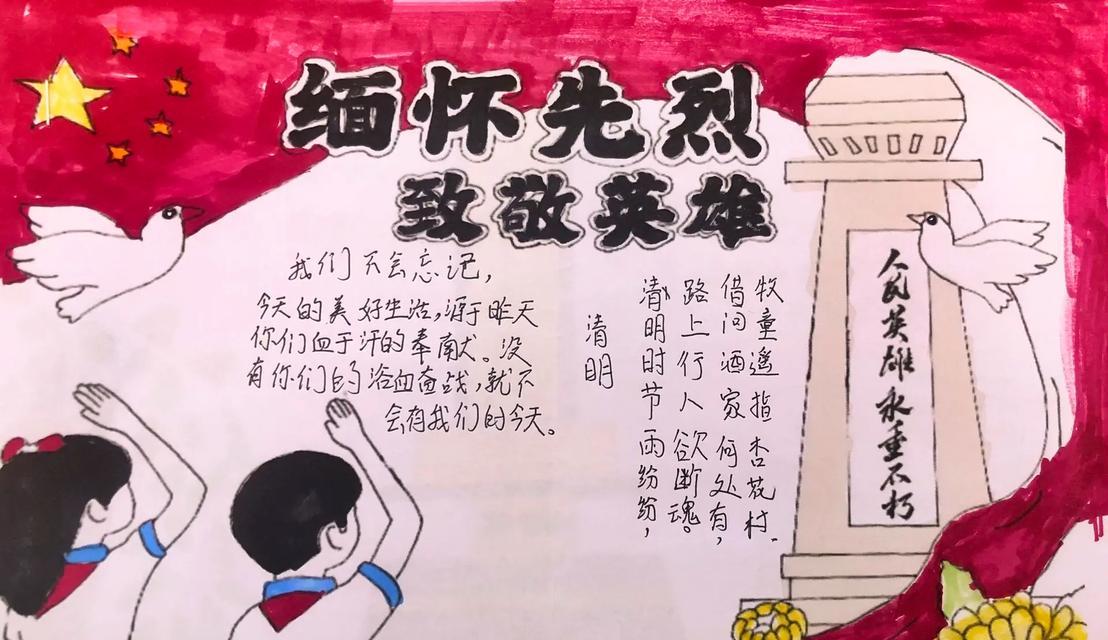 缅怀先烈
致敬英雄
我们不会忘记，
今天的美好生活，源于昨天
你们血于汗的奉献。没
有你们的浴血奋战，就不
会有我们的今天。
清明
清明时节雨纷纷，
路上行人欲断魂。
借问酒家何处有，
牧童遥指杏花村.
人民英雄永垂不朽